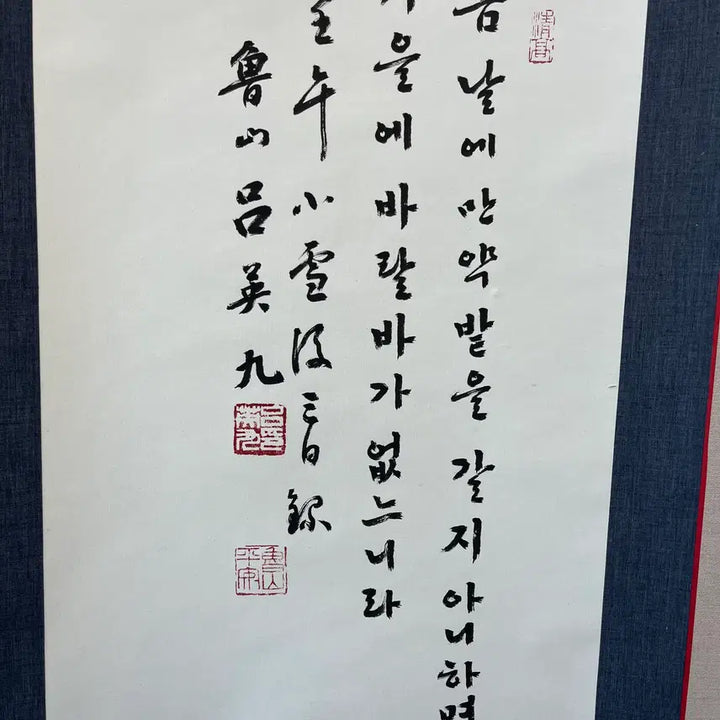 봄 날에 만약 밭을 갈지 아니하면
가을에 바랄 바가 없느니라
壬午 小雪後三日 錄
魯山 呂英九